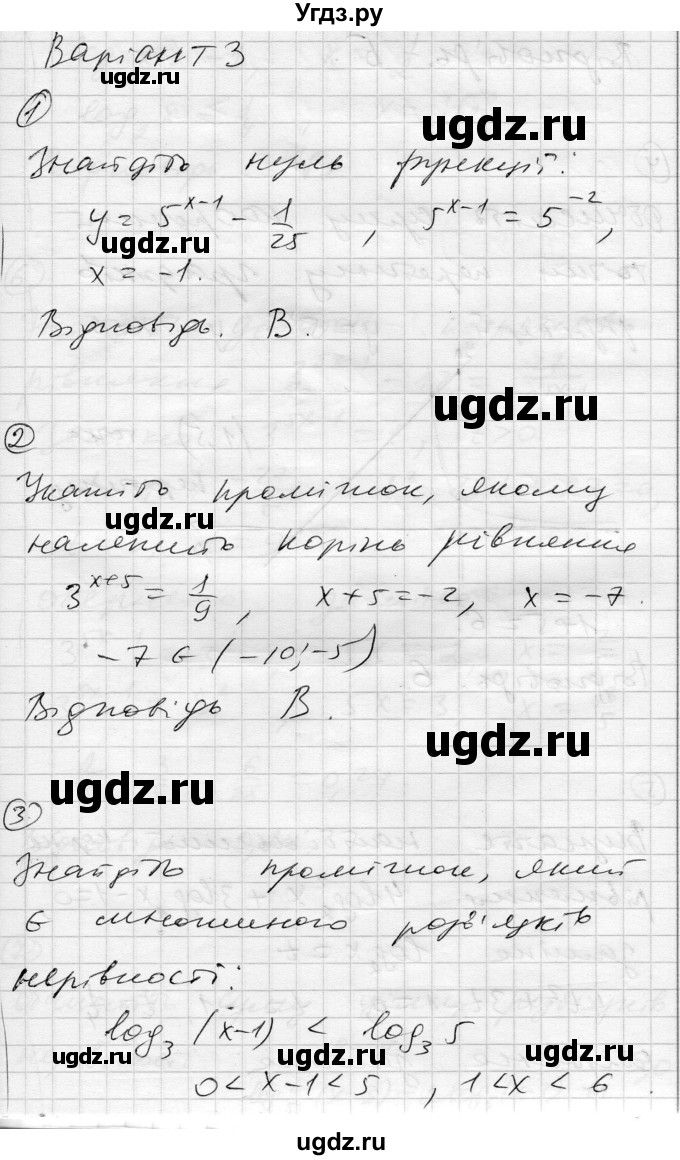 Угдз.ру
Варіант 3
ugdz.ru
1
ugdz.ru
Знайдіть нуль функції:
y = 5^{x-1} - 1/25 , 5^{x-1} = 5^{-2},
ugdz.ru
x = -1.
Відповідь. В.
ugdz.ru
2
Укажіть проміжок, якому
ugdz.ru
належить корінь рівняння
3^{x+5} = 1/9 , x+5 = -2, x = -7.
-7 ∈ (-10; -5)
Відповідь В.
ugdz.ru
ugdz.ru
3
Знайдіть проміжок, який
є множиною розв'язків
нерівності:
log₃ (x-1) < log₃ 5
ugdz.ru ugdz.ru ugdz.ru
0 < x-1 < 5 , 1 < x < 6 .
ugdz.ru